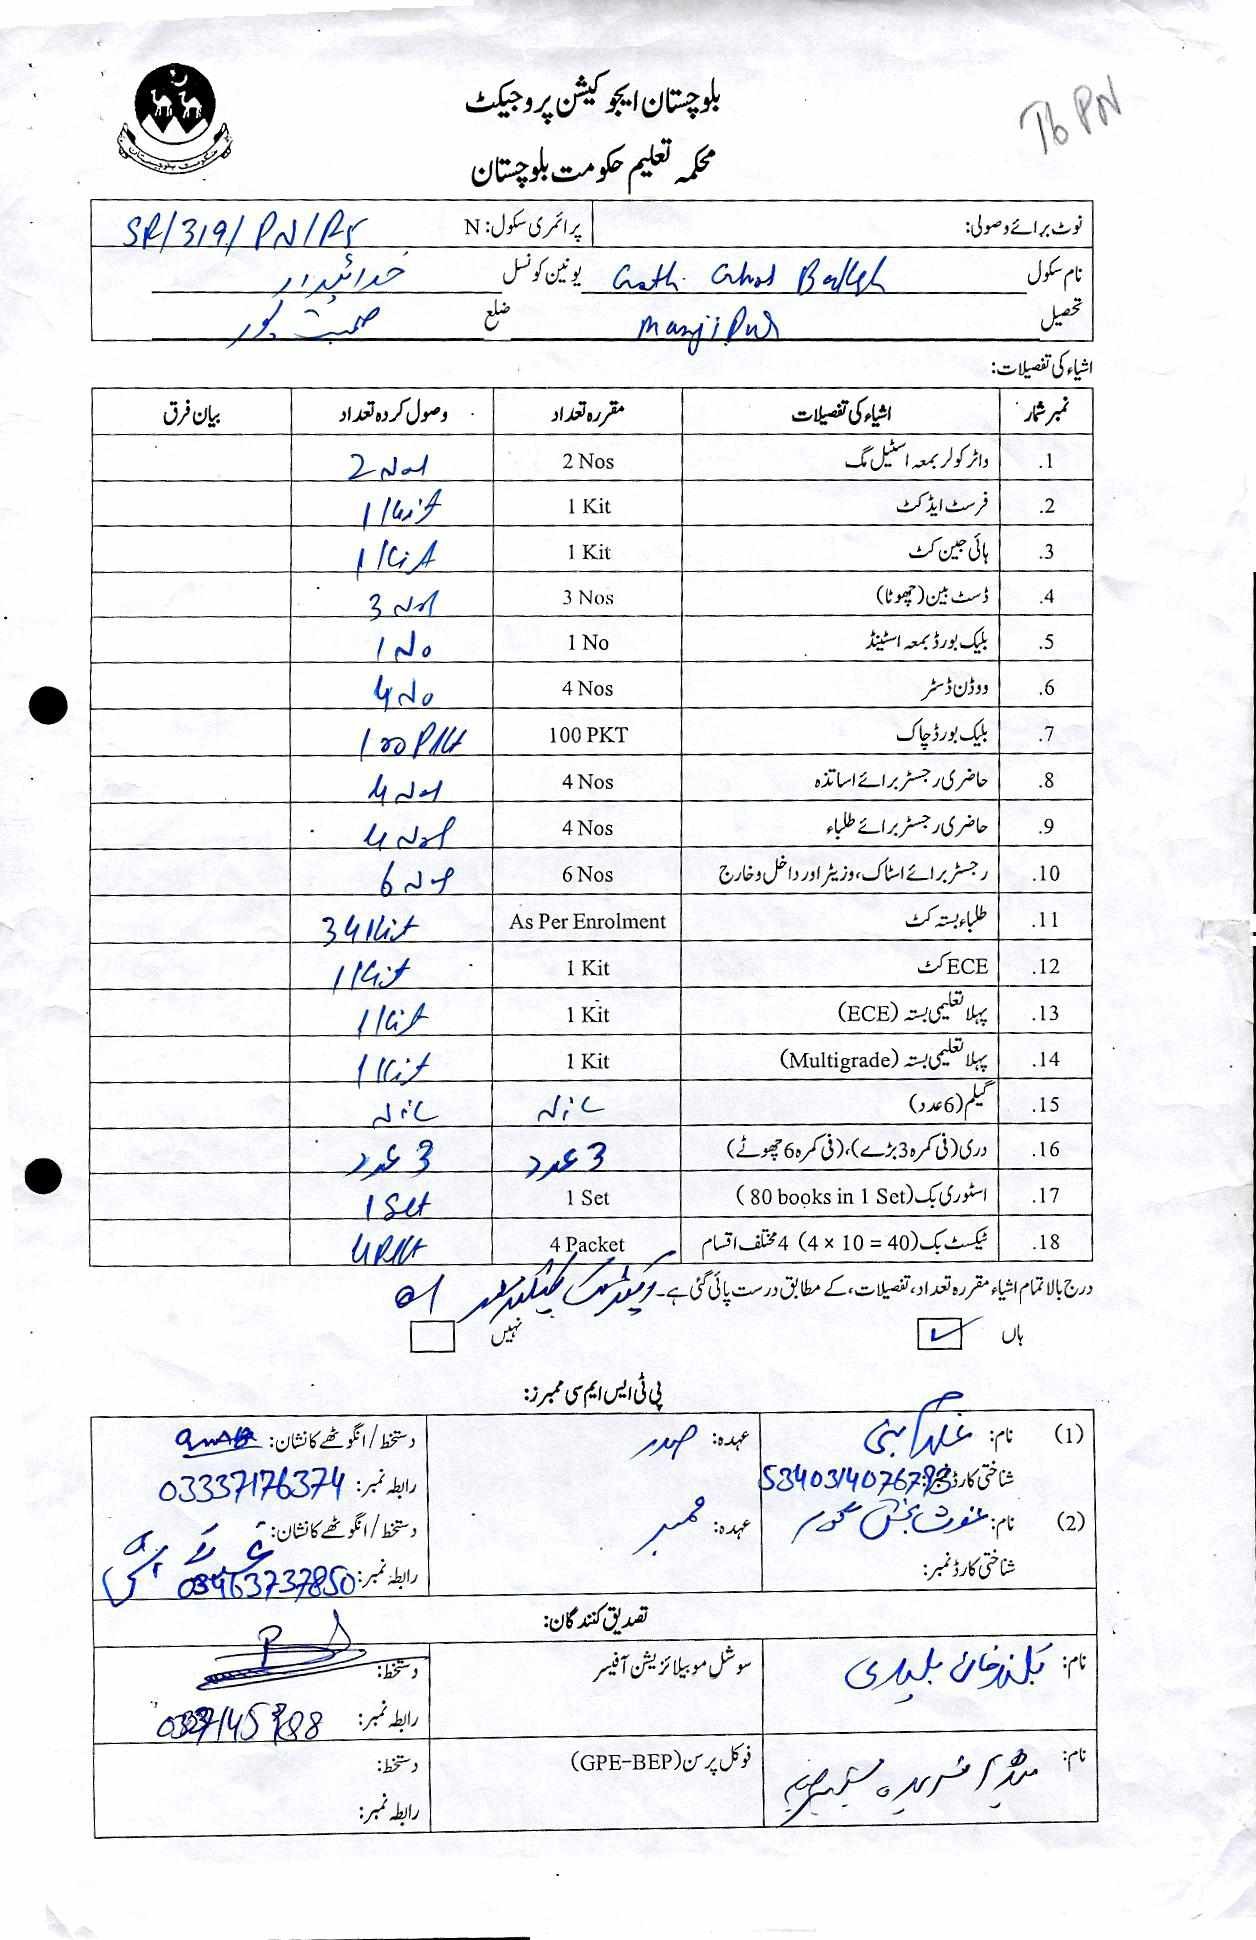 بلوچستان ایجوکیشن پروجیکٹ
T6 PN
محکمہ تعلیم حکومت بلوچستان
حکومت بلوچستان
نوٹ برائے وصولی: پرائمری سکول: N SR/319/PN/PS
نام سکول Goth Ghos Bakhsh یونین کونسل
تحصیل Manji Pur ضلع صحبت پور
اشیاء کی تفصیلات:
نمبر شمار اشیاء کی تفصیلات مقررہ تعداد وصول کردہ تعداد بیان فرق
.1 واٹر کولر بمعہ اسٹیل مگ 2 Nos 2 Nos
.2 فرسٹ ایڈ کٹ 1 Kit 1 Kit
.3 ہائی جین کٹ 1 Kit 1 Kit
.4 ڈسٹ بین (چھوٹا) 3 Nos 3 Nos
.5 بلیک بورڈ بمعہ اسٹینڈ 1 No 1 No
.6 ووڈن ڈسٹر 4 Nos 4 No
.7 بلیک بورڈ چاک 100 PKT 100 PKt
.8 حاضری رجسٹر برائے اساتذہ 4 Nos 4 Nos
.9 حاضری رجسٹر برائے طلباء 4 Nos 4 Nos
.10 رجسٹر برائے اسٹاک، وزیٹر اور داخل و خارج 6 Nos 6 Nos
.11 طلباء بستہ کٹ As Per Enrolment 34 Kit
.12 ECE کٹ 1 Kit 1 Kit
.13 پہلا تعلیمی بستہ (ECE) 1 Kit 1 Kit
.14 پہلا تعلیمی بستہ (Multigrade) 1 Kit 1 Kit
.15 گیلم (6 عدد) Nil Nil
.16 دری (فی کمرہ 3 بڑے)، (فی کمرہ 6 چھوٹے) 3 عدد 3 عدد
.17 اسٹوری بک (80 books in 1 Set) 1 Set 1 Set
.18 ٹیکسٹ بک (4 × 10 = 40) 4 مختلف اقسام 4 Packet 4 PKt
درج بالا تمام اشیاء مقررہ تعداد، تفصیلات، کے مطابق درست پائی گئی ہے۔
ہاں ✓ نہیں
پی ٹی ایس ایم سی ممبرز:
(1) نام: غلام نبی عہدہ: صدر دستخط / انگوٹھے کا نشان:
شناختی کارڈ نمبر: 5340314076793 رابطہ نمبر: 03337176374
(2) نام: غوث بخش عہدہ: ممبر دستخط / انگوٹھے کا نشان:
شناختی کارڈ نمبر: رابطہ نمبر: 03463737850
تصدیق کنندگان:
نام: بلند خان بلیدی سوشل موبیلائزیشن آفیسر دستخط:
رابطہ نمبر:
نام: فوکل پرسن (GPE-BEP) دستخط:
رابطہ نمبر: